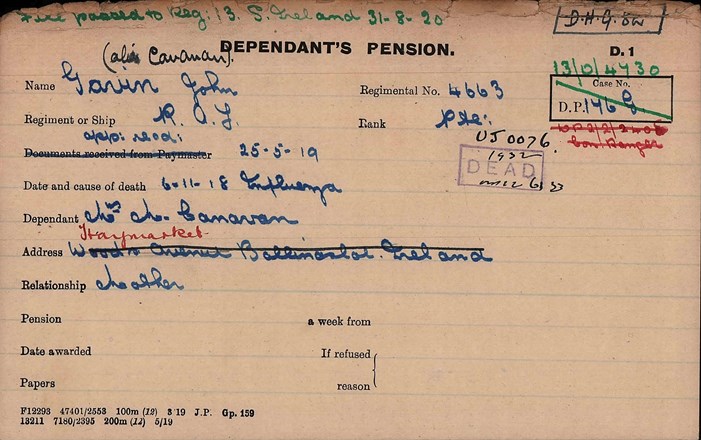 File passed to Reg: 13. S. Ireland 31-8-20
D.H.G. SW
(alias Cavanan). DEPENDANT'S PENSION.
D. 1
13/D/4730
Name Gavin John Regimental No. 4663
Case No.
D.P. 146 G
Regiment or Ship Rank Pte:
app: recd:
Documents received from Paymaster 25-5-19
UJ 0076.
1932
DEAD
Date and cause of death 6-11-18 Influenza
Dependant Mrs M. Canavan
Haymarket
Address Woods Avenue Ballinasloe. Ireland
Relationship Mother
Pension a week from
Date awarded If refused
Papers reason
F12293 47401/2553 100m (12) 3/19 J.P. Gp. 159
13211 7180/2395 200m (12) 5/19